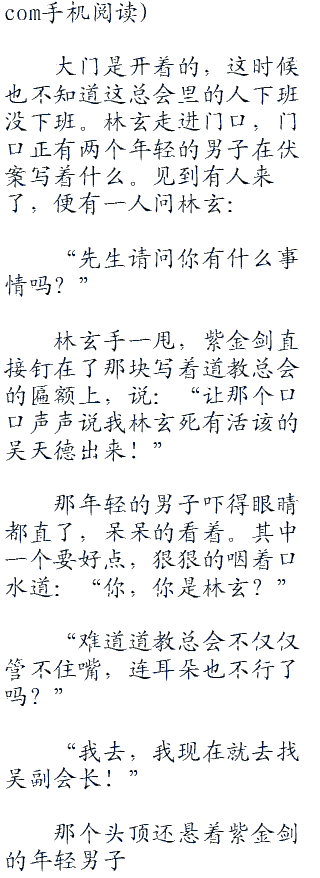 com手机阅读）
大门是开着的，这时候
也不知道这总会里的人下班
没下班。林玄走进门口，门
口正有两个年轻的男子在伏
案写着什么。见到有人来
了，便有一人问林玄：
“先生请问你有什么事
情吗？”
林玄手一甩，紫金剑直
接钉在了那块写着道教总会
的匾额上，说：“让那个口
口声声说我林玄死有活该的
吴天德出来！”
那年轻的男子吓得眼睛
都直了，呆呆的看着。其中
一个要好点，狠狠的咽着口
水道：“你，你是林玄？”
“难道道教总会不仅仅
管不住嘴，连耳朵也不行了
吗？”
“我去，我现在就去找
吴副会长！”
那个头顶还悬着紫金剑
的年轻男子